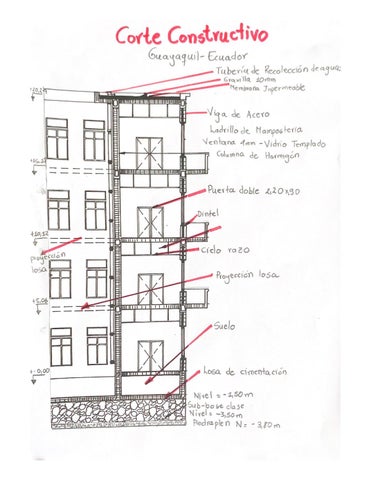 Corte Constructivo
Guayaquil-Ecuador
Tubería de Recolección de agua
Gravilla 20mm
Membrana Impermeable
Viga de Acero
Ladrillo de Mampostería
Ventana 4mm-Vidrio Templado
Columna de Hormigón
Puerta doble 2,20x90
Dintel
Cielo razo
proyección
losa
Proyección losa
Suelo
Losa de cimentación
Nivel = -1,50m
Sub-base clase
Nivel = -3,50m
Pedraplen N = -3,80m
+5,04
+-0,00